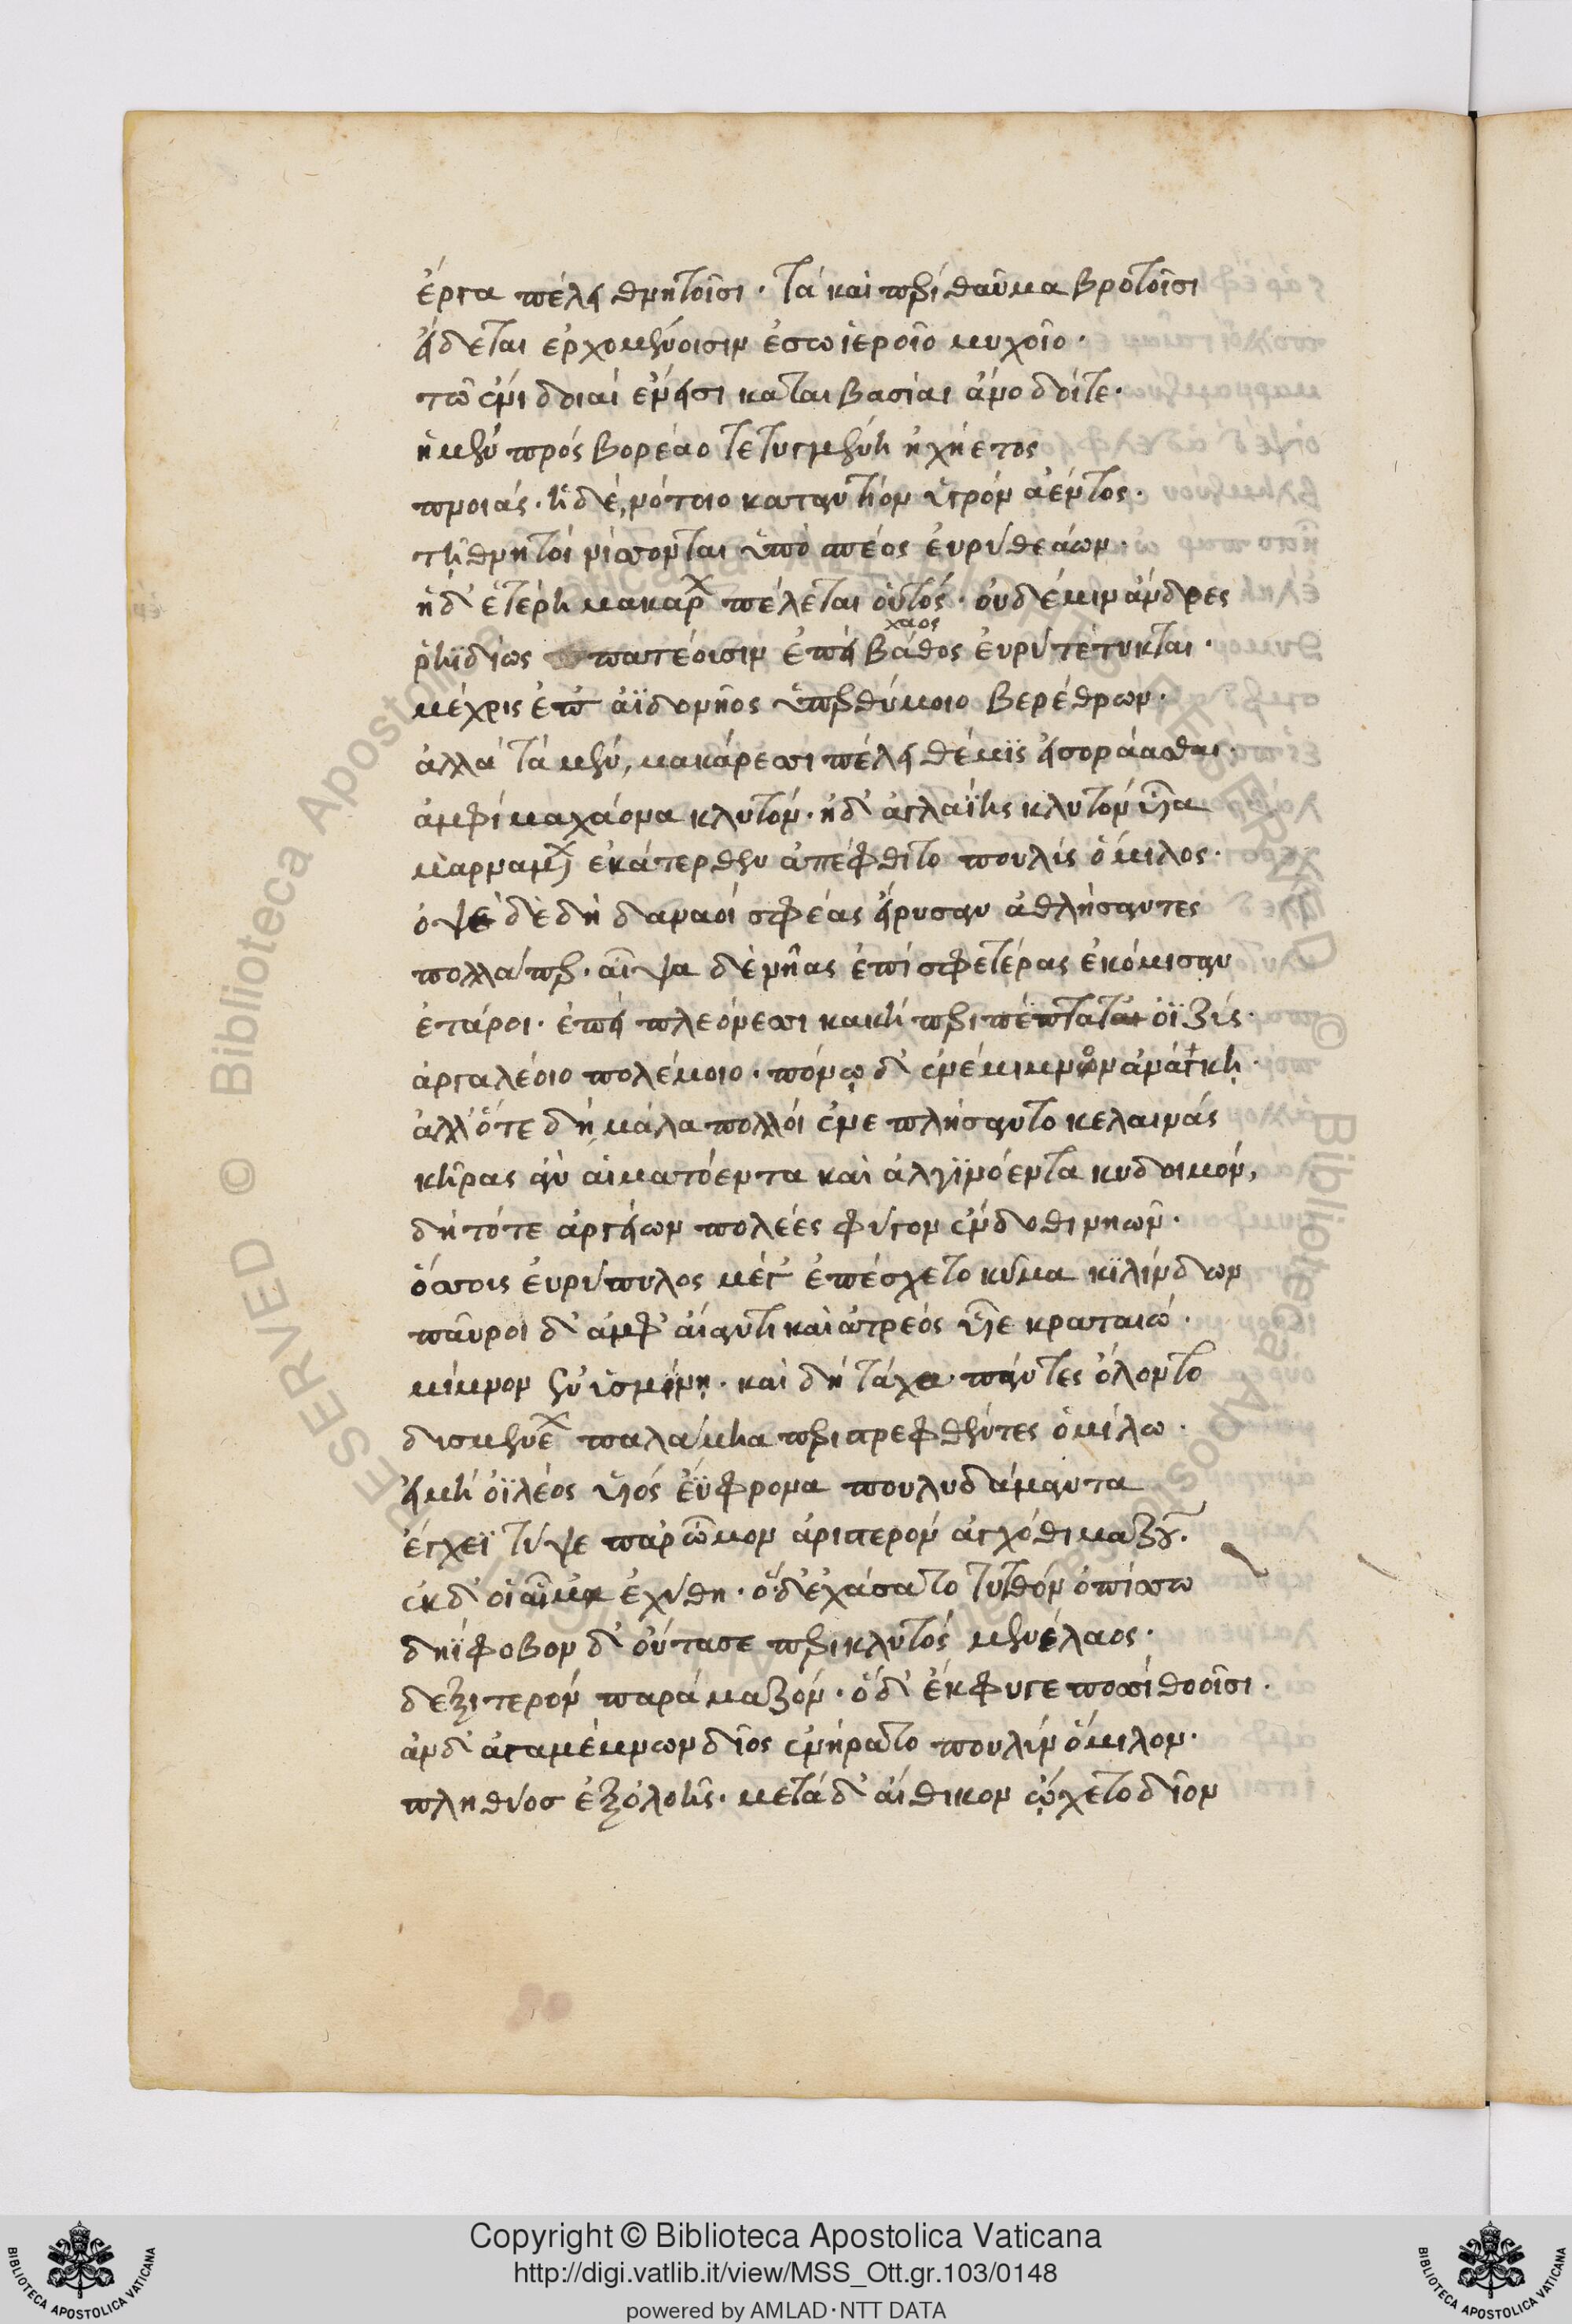 ἔργα πέλει θνητοῖσι· τὰ καὶ περὶ θαῦμα βροτοῖσι
εἴδεται ἐρχομένοισιν ἔσω ἱεροῖο μυχοῖο·
τῶ ἐνὶ δοιαί εἰνεισι καταιβασίαι ἀνοδοί τε·
ἡ μὲν πρὸς βορέαο τετυγμένη ἠχήετος
πνοιάς· ἡ δὲ, νότοιο καταντίον ὑγρὸν ἀέντος·
τῇ θνητοὶ νίσσονται ὑπὸ σπέος εὐρὺ θεάων·
ἡ δ' ἑτέρη μακάρων πέλεται ὁδός· οὐδέ μιν ἄνδρες
χάος
ῥηϊδίως πατέοισιν ἐπεὶ βάθος εὐρὺ τέτυκται·
μέχρις ἐπ' ἀϊδονῆος ὑπερθύμοιο βερέθρων·
ἀλλὰ τὰ μὲν, μακάρεσσι πέλει θέμις εἰσοράασθαι·
ἀμφὶ μαχάονα κλυτόν· ἠδ' ἀγλαΐης κλυτὸν υἷα
μαρναμένων ἑκάτερθεν ἀπέφθιτο πουλὺς ὅμιλος·
ὀψὲ δὲ δὴ δαναοί σφέας εἴρυσαν ἀθλήσαντες
πολλά περ· αἶψα δὲ νῆας ἐπὶ σφετέρας ἐκόμισαν
ἑτάροι· ἐπεὶ πλεόνεσσι κακὴ περιπέπτατο ὀϊζύς·
ἀργαλέοιο πολέμοιο· πόνῳ δ' ἐνέμιμνον ἀνάγκῃ·
ἀλλ' ὅτε δὴ μάλα πολλοὶ ἐνεπλήσαντο κελαινὰς
κῆρας ἀν' αἱματόεντα καὶ ἀλγινόεντα κυδοιμόν,
δὴ τότε ἀργείων πολέες φύγον ἔνδοθι νηῶν·
ὅσσοις εὐρύπυλος μέγ' ἐπέσχετο κῦμα κϊλίνδων
παῦροι δ' ἀμφ' αἴαντι καὶ ἀτρέος υἷε κραταιώ·
μίμνον ἐν ὑσμίνῃ· καὶ δὴ τάχα πάντες ὄλοντο
δυσμενέων παλάμηα περιστρεφθέντες ὁμίλω·
εἰ μὴ ὀϊλέος υἱὸς ἐΰφρονα πουλυδάμαντα
ἔγχεϊ τύψε παρ' ὦμον ἀριστερὸν ἀγχόθι μαζοῦ·
ἐκ δ' οἱ αἷμα ἐχύθη· ὁ δ' ἐχάσατο τυτθὸν ὀπίσσω
δηΐφοβον δ' οὔτασε περικλυτὸς μενέλαος·
δεξιτερὸν παρὰ μαζόν· ὁ δ' ἔκφυγε ποσὶ θοοῖσι·
ἂν δ' ἀγαμέμνων δῖος ἐνήρατο πουλὺν ὅμιλον·
πληθύοσ ἐξ ὀλοῆς· μετὰ δ' αἴθικον ᾤχετο δῖον
Copyright © Biblioteca Apostolica Vaticana
http://digi.vatlib.it/view/MSS_Ott.gr.103/0148
powered by AMLAD·NTT DATA